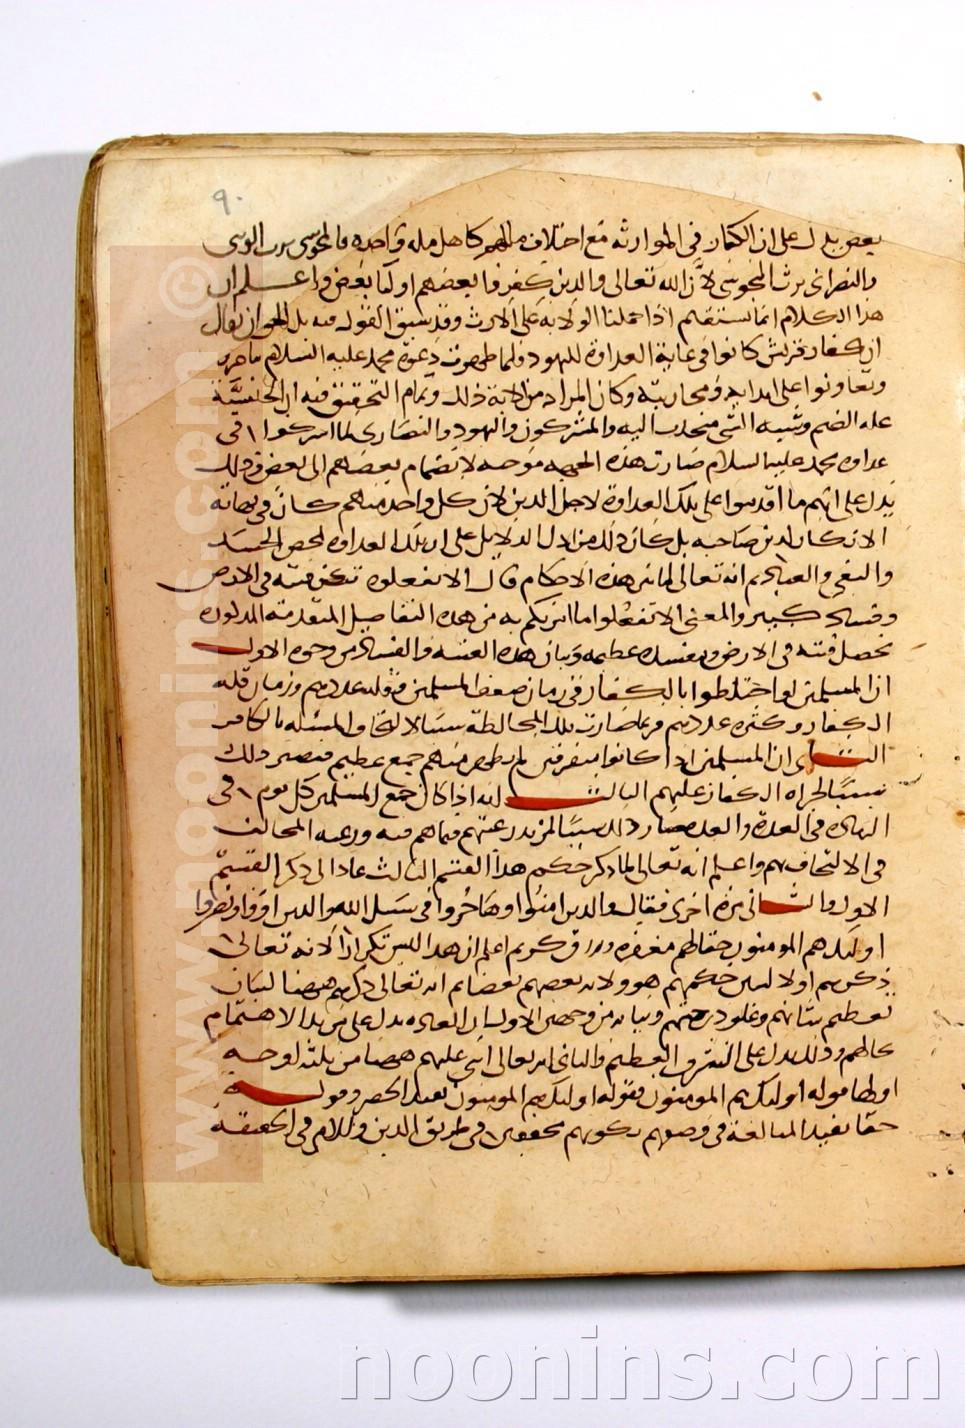 ٩٠
بعض يدل على ان الكفار في الموارثه مع اختلاف مللهم كاهل مله واحده فالمجوسي يرث الوثني
والنصراني يرث المجوسي لان الله تعالى قال والذين كفروا بعضهم اوليا بعض واعلم ان
هذا الكلام انما يستقيم اذا حملنا الولايه على الارث وقد سبق القول فيه بل الحق ان يقال
ان كفار قريش كانوا في غاية العداوة لليهود فلما ظهرت دعوة محمد عليه السلام تناصروا
وتعاونوا على ايذايه ومحاربته وكان المراد من الاية ذلك وتمام التحقيق فيه ان الجنسية
علة الضم وشبيه الشي منجذب اليه والمشركون واليهود والنصارى لما اشتركوا في
عداوه محمد عليه السلام صارت هذه الجهه موجبه لانضمام بعضهم الى بعض وذلك
يدل على انهم ما اقدموا على تلك العداوة لاجل الدين لان كل واحد منهم كان في نهاية
الانكار لدين صاحبه بل كان ذلك من ادل الدلايل على ان تلك العداوه لمحض الحسد
والبغي والعناد ثم انه تعالى لما بين هذه الاحكام قال الا تفعلوه تكن فتنة في الارض
وفساد كبير والمعنى الا تفعلوا ما امرتكم به من هذه التفاصيل المتقدمة المذكوره
تحصل فتنه في الارض ومفسده عظيمه وبيان هذه الفتنه والفساد من وجوه الاول
ان المسلمين لو اختلطوا بالكفار في زمان ضعف المسلمين وقله عددهم وزمان قوة
الكفار وكثره عددهم فربما صارت تلك المخالطة سببا لالتحاق المسلم بالكافر
الثاني ان المسلمين اذا كانوا متفرقين لم يظهر منهم جمع عظيم فيصير ذلك
سببا لجراه الكفار عليهم الثالث انه اذا كان جمع المسلمين كل يوم في
الزيادة في العدة والعدد صار ذلك سببا لمزيد رغبتهم فيما هم فيه ورغبه المخالف
في الالتحاق بهم واعلم انه تعالى لما ذكر حكم هذا القسم الثالث عاد الى ذكر القسم
الاول والثاني مرة اخرى فقال والذين امنوا وهاجروا في سبيل الله والذين اووا ونصروا
اوليك هم المومنون حقا لهم مغفرة ورزق كريم اعلم ان هذا ليس تكرارا لانه تعالى
ذكرهم اولا ليبين حكمهم وهو ولاية بعضهم بعضا ثم انه تعالى ذكرهم ههنا لبيان
تعظيم شانهم وعلو درجتهم وبيانه من وجهين الاول ان الاعاده يدل على مزيد الاهتمام
بحالهم وذلك يدل على الشرف والتعظيم والثاني انه تعالى اثنى عليهم ههنا من ثلثه اوجه
اولها قوله اوليك هم المومنون فقوله اوليك هم المومنون يفيد الحصر وقوله
حقا يفيد المبالغة في وصفهم بكونهم محقين في طريق الدين والامر في الحقيقة
© www.noonins.com
noonins.com